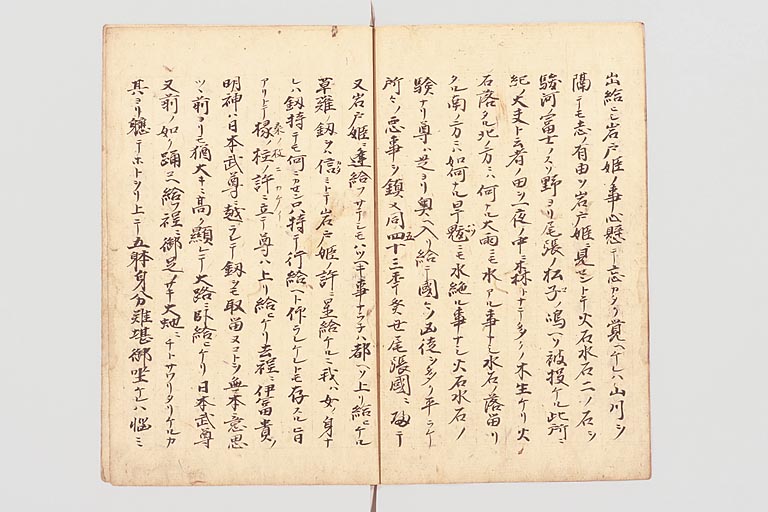 出給シニ岩戸姫ノ事心懸テ忘カタク覚ヘケレハ山川ヲ
隔テモ志ノ有由ヲ岩戸姫ニ見セントテ火石水石二ノ石ヲ
駿河富士ノスソ野ヨリ尾張ノ松子ノ嶋ヘソ被投ケル此所ニ
紀ノ大夫ト云者ノ田ソ一夜ノ中ニ森トナテ多クノ木生ケリ火ノ
石落タル北ノ方ニハ何ナル大雨ニモ水アル事ナシ水石ノ落留リ
タル南ノ方ニハ如何ナル旱魃ニモ水絶ル事ナシ火石水石ノ
験ナリ尊ハ是ヨリ奥ヘ入リ給テ國々ノ凶徒ヲ多ク平ラケ
所々ノ悪事ヲ鎮メ同四十三年癸丑尾張國ニ歸テ
五
又岩戸姫ニ逢給フサテシモハツヘキ事ナラテハ都ヘソ上リ給ヒケル
草薙ノ釼ヲハ信ミトテ岩戸姫ノ許ニ置給ケルニ我ハ女ノ身ナ
レハ釼持テモ何ニカセン只持テ行給ヘト仰ラレケレトモ存スル旨
桑ノ枝ニカケ
アリトテ椽ノ柱ノ許ニ立テ尊ハ上リ給ヒケリ去程ニ伊富貴ノ
明神ハ日本武尊ニ越ラレテ釼ヲモ取留メマコトシ無本意思
ツヽ前ヨリモ猶大キニ高ク顕レテ大路ニ臥給ヒケリ日本武尊
又前ノ如ク踊コヘ給フ程ニ御足ノサキ大虵ニチトサワリタリケルカ
其ヨリ懸テホトヲリ上テ五躰身分難堪御坐ケレハ惱ミ